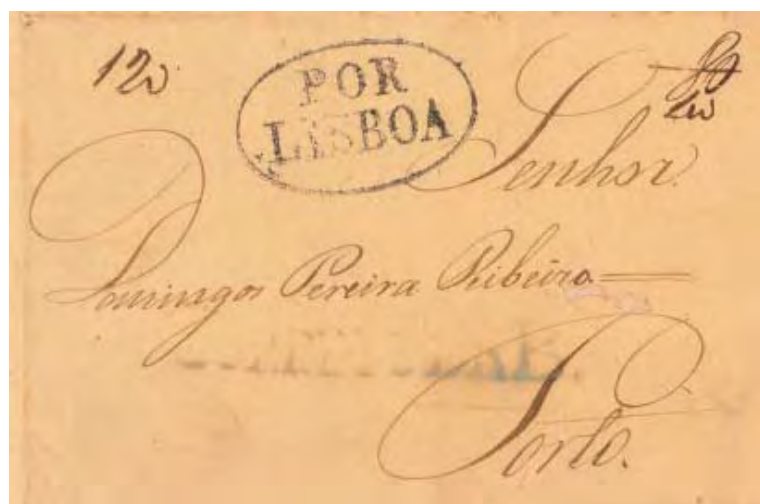 120
POR
LISBOA
Senhor
Domingos Pereira Ribeiro
Porto.